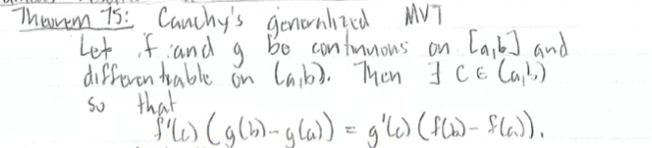 Theorem 75: Cauchy's generalized MVT
Let f and g be continuous on [a,b] and
differentiable on (a,b). Then ∃ c ∈ (a,b)
so that
f'(c) (g(b)-g(a)) = g'(c) (f(b)-f(a)).